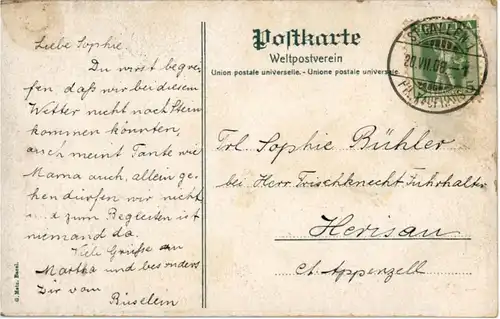 Postkarte
Weltpostverein
Union postale universelle. - Unione postale universale
ST. GALLEN 1
20.VII.09
Liebe Sophie
Du wirst begrei-
fen, daß wir bei diesem
Wetter nicht nach Stein
kommen könnten,
auch meint Tante wie
Mama auch, allein ge-
hen dürfen wir nicht
u.d zum Begleiten ist
niemand da.
Viele Grüße an
Martha und besonders
Dir vom
Büselein
Frl. Sophie Bühler
bei Herr Frischknecht Fuhrhalter
Herisau
Ct. Appenzell
G. Metz, Basel.